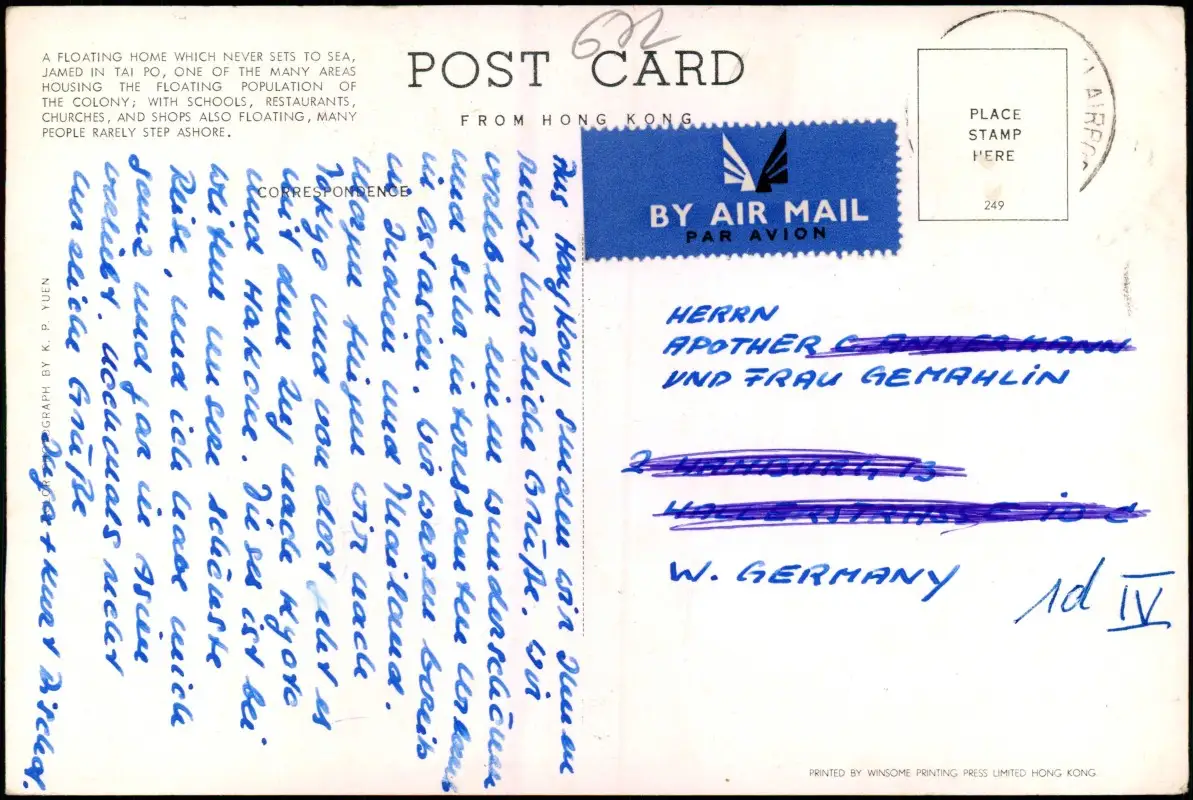 A FLOATING HOME WHICH NEVER SETS TO SEA,
JAMED IN TAI PO, ONE OF THE MANY AREAS
HOUSING THE FLOATING POPULATION OF
THE COLONY; WITH SCHOOLS, RESTAURANTS,
CHURCHES, AND SHOPS ALSO FLOATING, MANY
PEOPLE RARELY STEP ASHORE.
POST CARD
FROM HONG KONG
CORRESPONDENCE
GRAPH BY K. P. YUEN
Aus HongKong senden wir Ihnen
recht herzliche Grüße. Wir
erleben einen wunderschönen
und sehr interessanten Urlaub
in Ostasien. Wir waren bereits
in Indien und Thailand.
Morgen fliegen wir nach
Tokyo und von dort geht es
mit dem Zug nach Kyoto
und Hakone. Dieses ist bei
weitem unsere schönste
Reise, und ich habe mich
ganz und gar in Asien
verliebt. Nochmals recht
herzliche Grüße
+ Kurt
BY AIR MAIL
PAR AVION
PLACE
STAMP
HERE
249
HERRN
APOTHEKER
UND FRAU GEMAHLIN
W. GERMANY
1d IV
PRINTED BY WINSOME PRINTING PRESS LIMITED HONG KONG